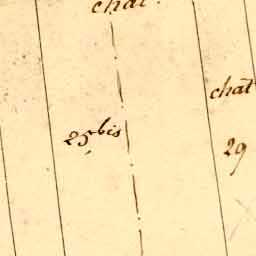 chat.
25 bis
chat
29